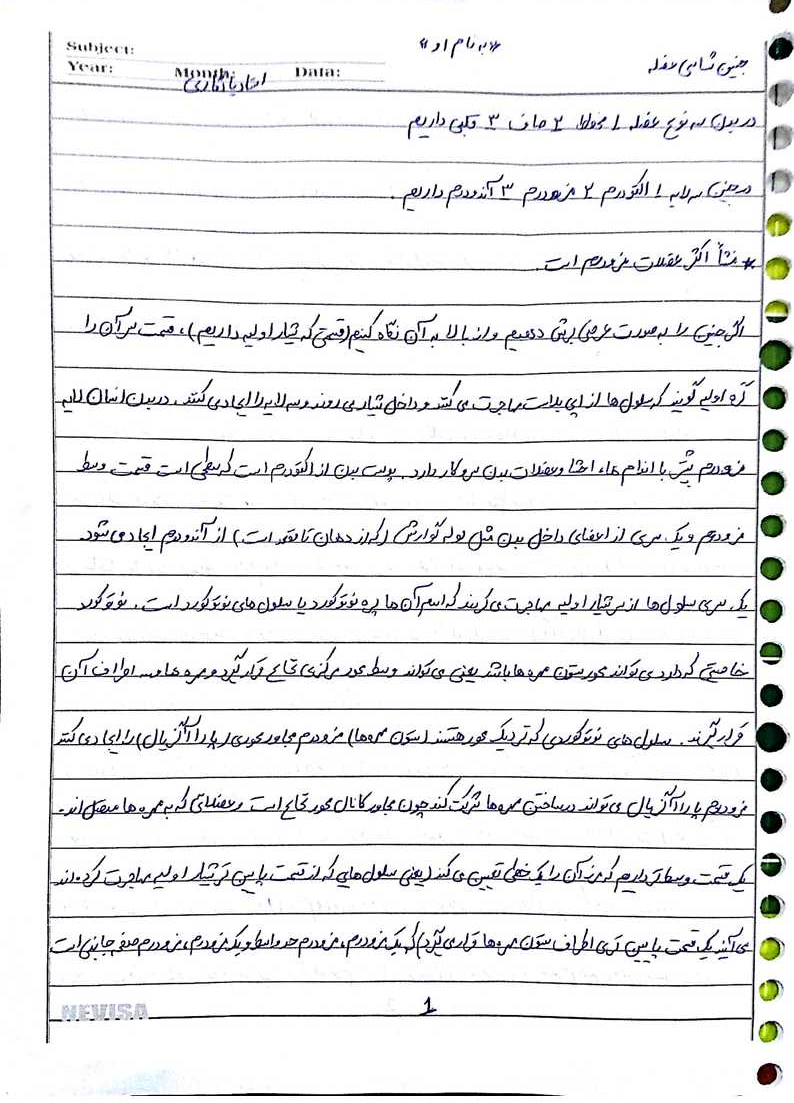 «به نام او»
Subject:
Year: Month: Data:
جنین شناسی عضله
استاد
در بدن سه نوع عضله 1 مخطط 2 صاف 3 قلبی داریم
در جنین سه لایه 1 اکتودرم 2 مزودرم 3 آندودرم داریم.
* منشأ اکثر عضلات مزودرم است.
اگر جنین را به صورت عرضی برش دهیم و از بالا به آن نگاه کنیم (قسمتی که شیار اولیه داریم)، قسمت سر آن را
گره اولیه گویند که سلول ها از اپی بلاست مهاجرت می کنند و داخل شیار می روند و سه لایه را ایجاد می کنند. در بدن انسان لایه
مزودرم بیشتر با اندام ها، احشا و عضلات بدن سر و کار دارد. پوست بدن از اکتودرم است که سطحی است قسمت وسط
مزودرم و یک سری از اعضای داخل بدن مثل لوله گوارش (که از دهان تا مقعد است) از آندودرم ایجاد می شود.
یک سری سلول ها از سر شیار اولیه مهاجرت می کردند که اسم آن ها پره نوتوکورد یا سلول های نوتوکورد است. نوتوکورد
خاصیتی که دارد می تواند محور ستون مهره ها باشد یعنی می تواند وسط محور مرکزی نخاع قرار گیرد و مهره ها اطراف آن
قرار گیرند. سلول های نوتوکوردی که نزدیک محور هستند (ستون مهره ها) مزودرم مجاور محوری (پارا آگزیال) را ایجاد می کنند
مزودرم پارا آگزیال می تواند در ساختن مهره ها شرکت کند چون مجاور کانال محور نخاع است و عضلاتی که به مهره ها متصل اند.
یک قسمت وسط تر داریم که مرز آن را یک خطی تعیین می کند (یعنی سلول هایی که از قسمت پایین تر شیار اولیه مهاجرت کرده اند
می آیند یک قسمت پایین تری اطراف ستون مهره ها قرار می گیرد) که یک مزودرم، مزودرم حد واسط و یک مزودرم، مزودرم صفحه جانبی است
NEVISA
1